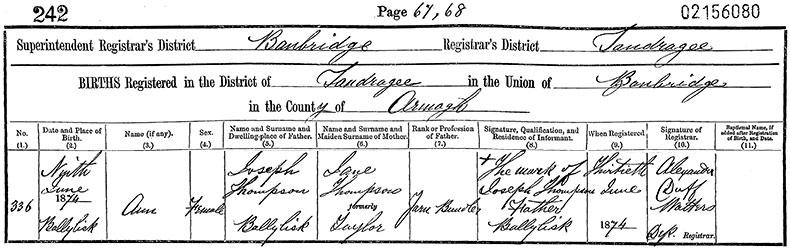 242 Page 67, 68 02156080
Superintendent Registrar's District Banbridge Registrar's District Tandragee
BIRTHS Registered in the District of Tandragee in the Union of Banbridge
in the County of Armagh
No. Date and Place of Birth. Name (if any). Sex. Name and Surname and Dwelling-place of Father. Name and Surname and Maiden Surname of Mother. Rank or Profession of Father. Signature, Qualification, and Residence of Informant. When Registered Signature of Registrar. Baptismal Name, if added after Registration of Birth, and Date.
(1.) (2.) (3.) (4.) (5.) (6.) (7.) (8.) (9.) (10.) (11.)
336 Ninth June 1874 Ballylisk Ann Female Joseph Thompson Ballylisk Jane Thompson formerly Taylor Farm + The mark of Joseph Thompson Father Ballylisk Thirtieth June 1874 Alexander Duff Watters Registrar.